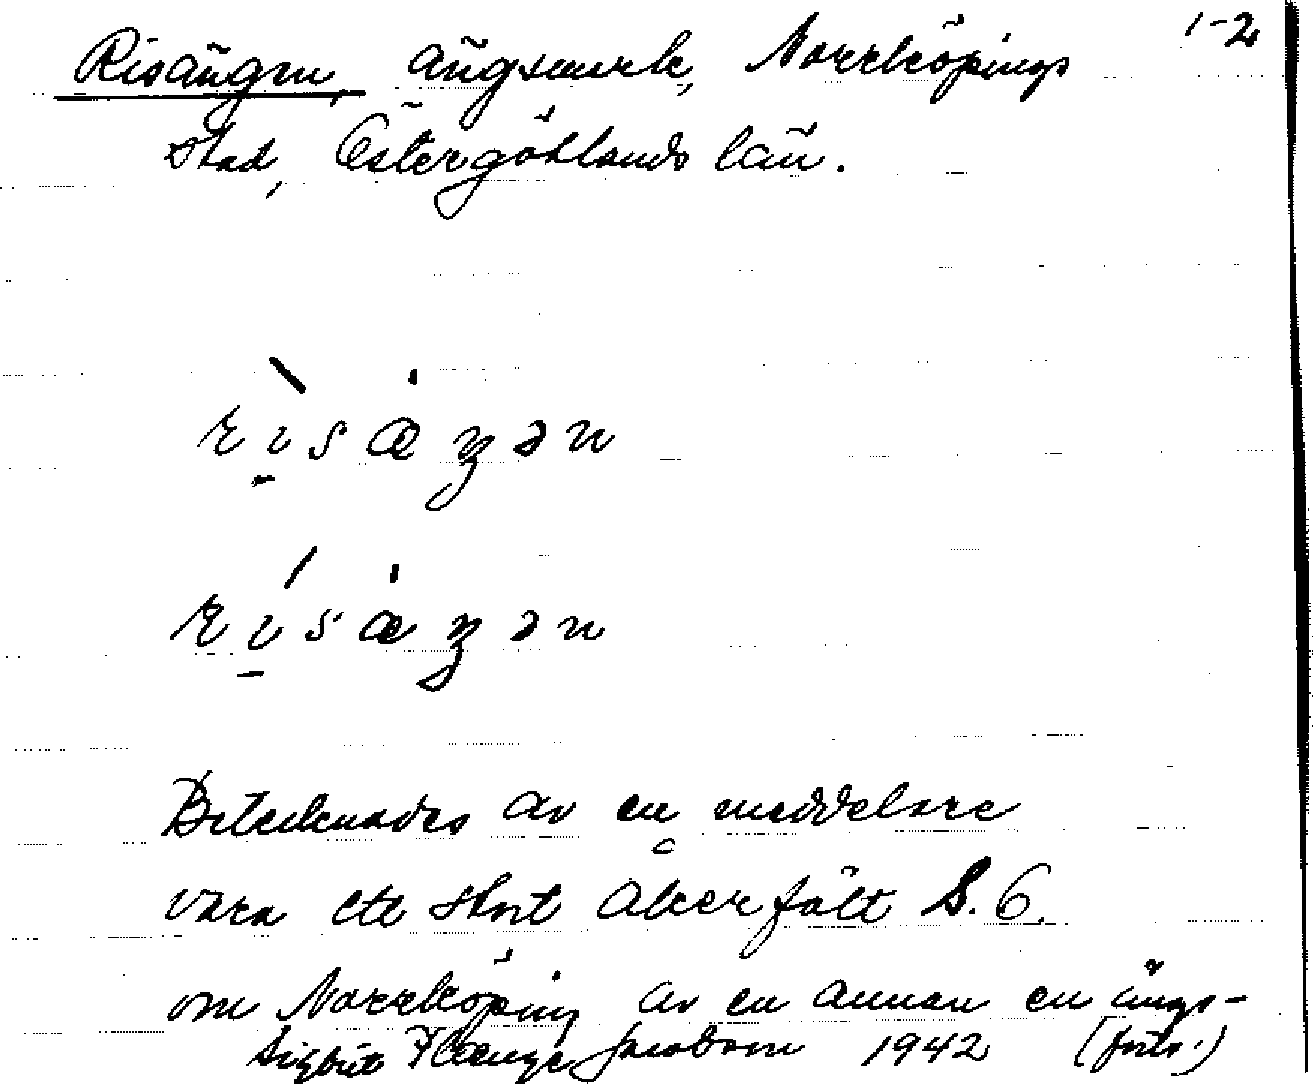 1-2
Risängen, ängsmark, Norrköpings
stad, Östergötlands län.
rìsæŋən
rísæŋən
Betecknades av en meddelare
vara ett stort åkerfält S. Ö.
om Norrköping av en annan en ängs-
Sigbrit Plænge Jacobson 1942 (forts.)